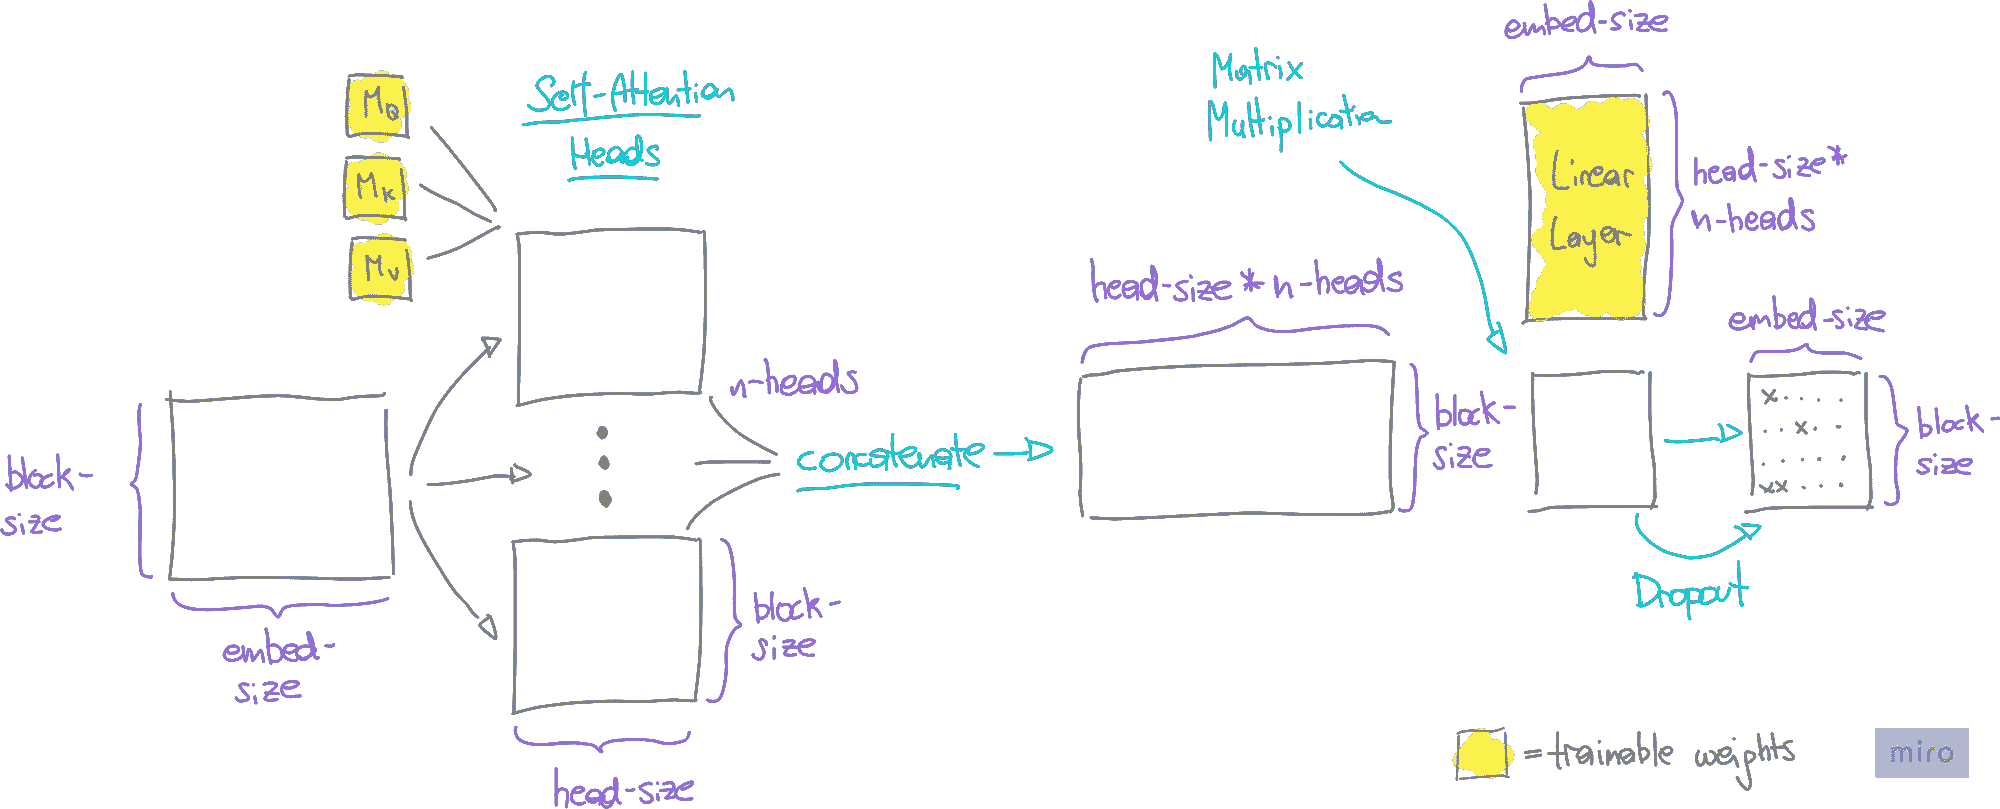 M_Q
M_K
M_V
Self-Attention
Heads
block-
size
embed-
size
n-heads
block-
size
head-size
concatenate
head-size * n-heads
block-
size
Matrix
Multiplication
embed-size
Linear
Layer
head-size *
n-heads
embed-size
x . . . .
. . x . .
. . . . .
x x . . .
block-
size
Dropout
= trainable weights
miro